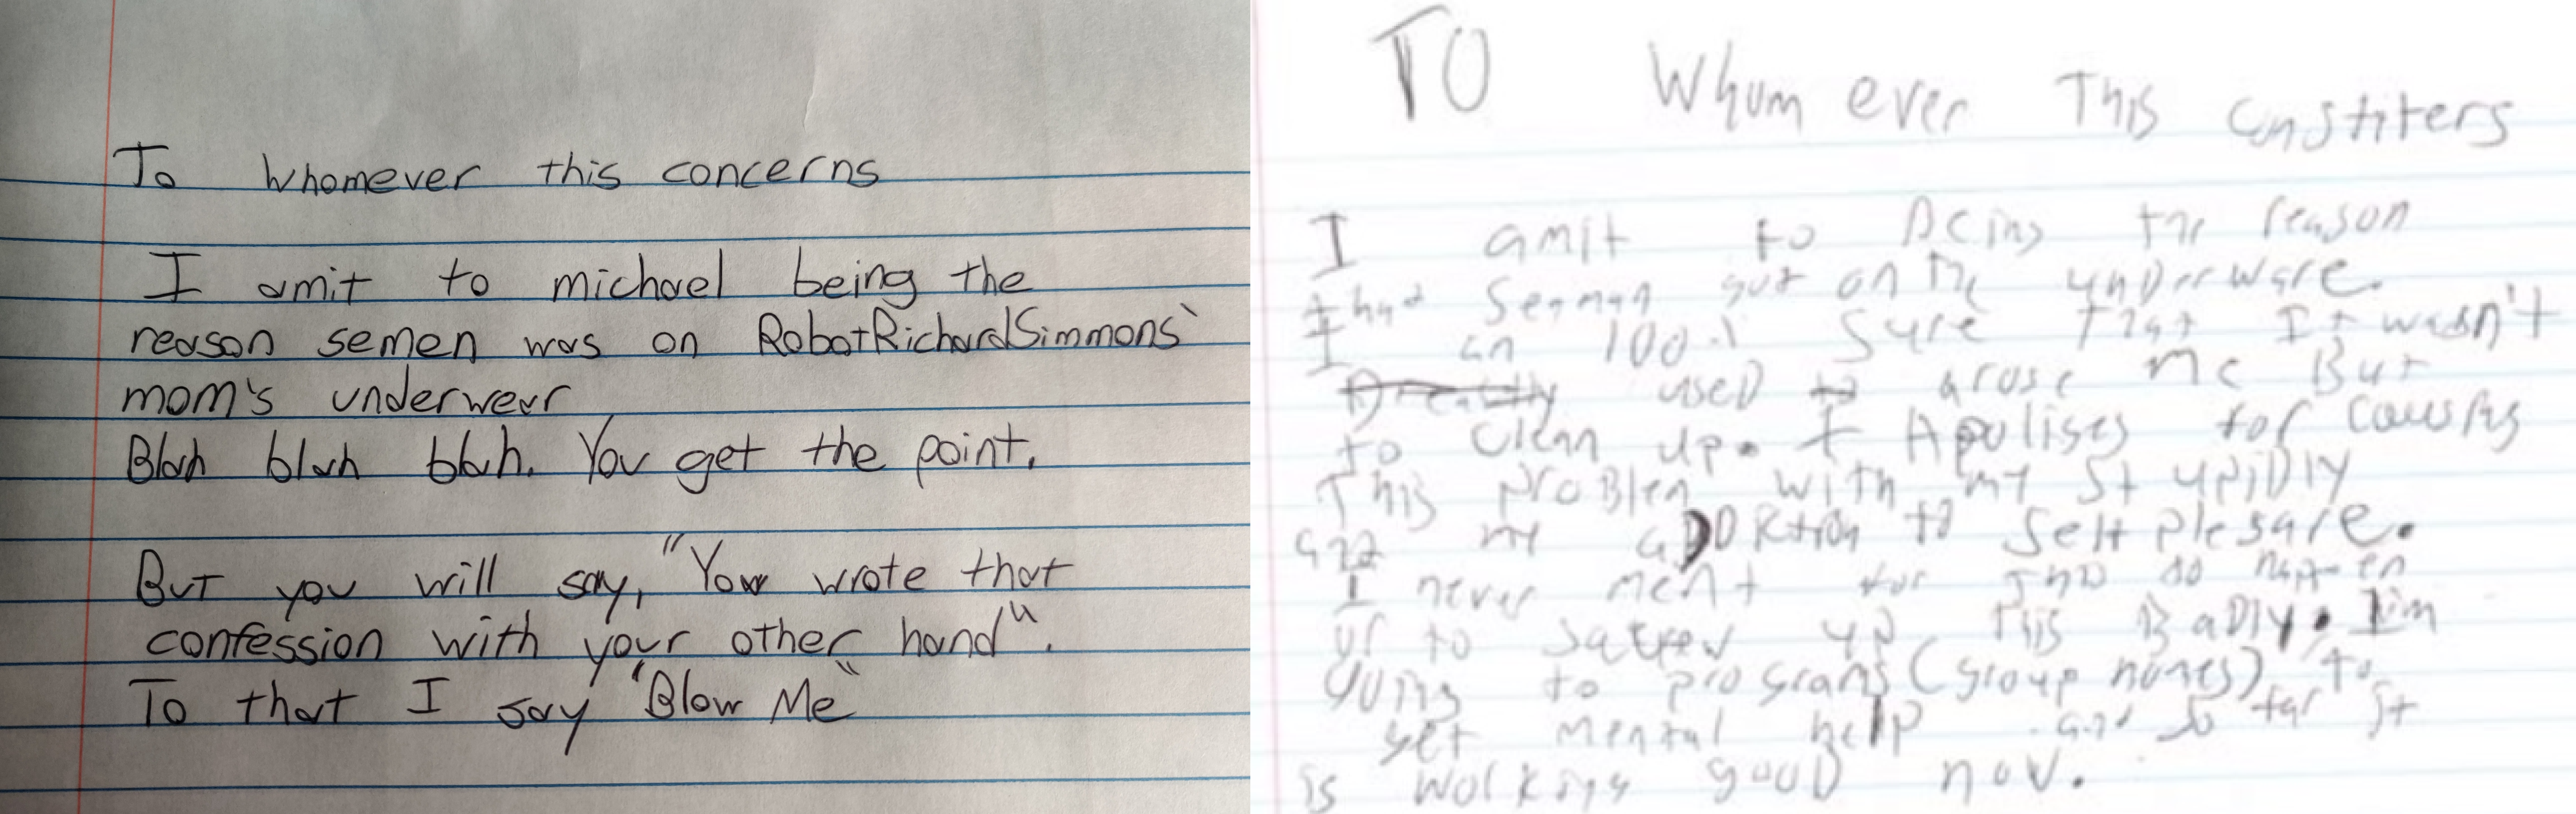 To Whomever this concerns
I amit to michael being the
reason semen was on RobotRichardSimmons`
mom's underwear
Blah blah blah. You get the point.
But you will say, "You wrote that
confession with your other hand".
To that I say "Blow Me"
TO Whum ever This
I amit to Being the reason
that Seaman got on the underware.
I an 100% Sure that It wasn't
used to arose me But
to clean up. I Apolises for Cousing
This problem with my Stupidly
and my to Self plesare.
I never ment for to
or to up this BaDly. Iim
going to programs (group homes) to
get mental help and so far it
is working gooD now.